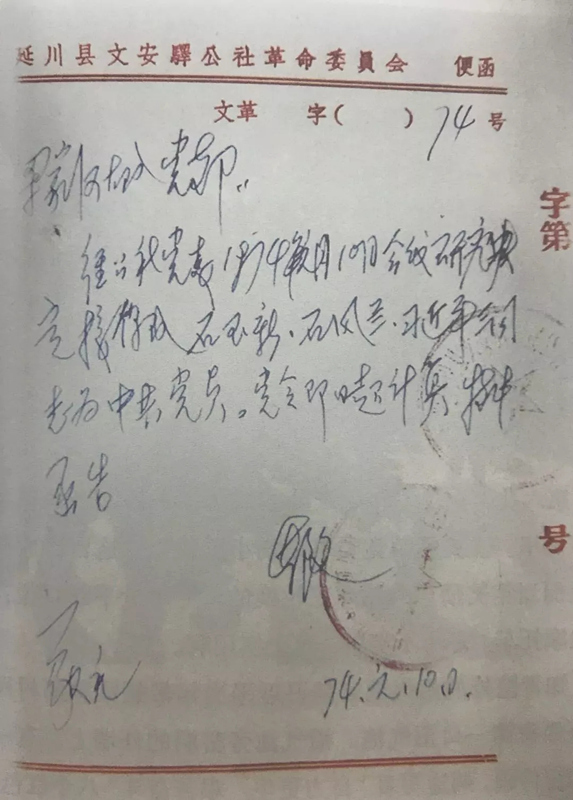 延川县文安驛公社革命委員会 便函
文革 字( ) 74 号
梁家河大队党支部:
经公社党委1974年元月10日会议研究决
定接收 石玉新、石风兰、习近平 同
志为中共党员。党令即日起计算,特此
函告
此致
敬礼
74.元.10日.
字第
号